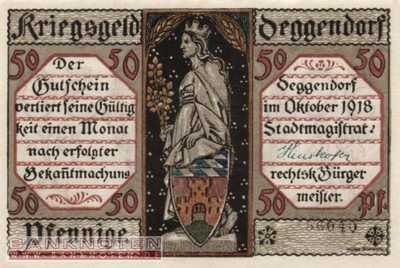 Kriegsgeld Deggendorf
50 50
Der
Gutschein
verliert seine Gültig
keit einen Monat
nach erfolgter
Bekanntmachung
50 50
Pfennige
50 50
Deggendorf
im Oktober 1918
Stadtmagistrat:
rechtsk. Bürger
meister.
50 50
Pf.
BANKNOTEN